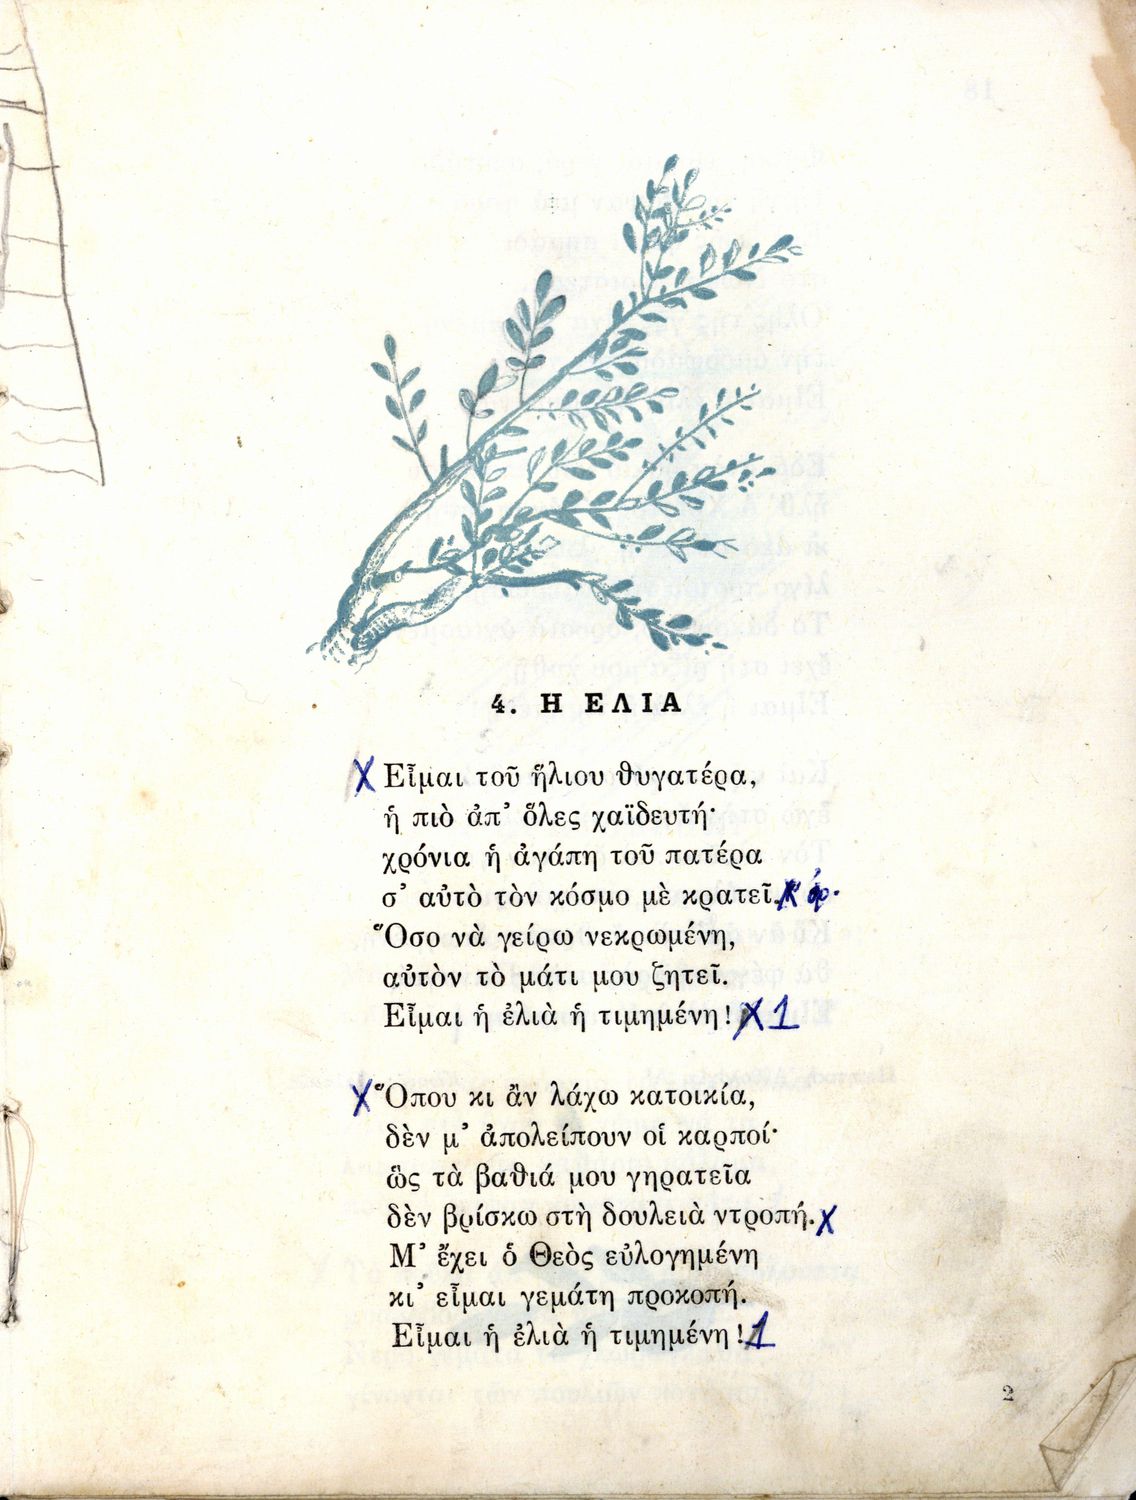 4. Η ΕΛΙΑ
X Εἶμαι τοῦ ἥλιου θυγατέρα,
ἡ πιὸ ἀπ' ὅλες χαϊδευτή·
χρόνια ἡ ἀγάπη τοῦ πατέρα
σ' αὐτὸ τὸν κόσμο μὲ κρατεῖ.
Ὅσο νὰ γείρω νεκρωμένη,
αὐτὸν τὸ μάτι μου ζητεῖ.
Εἶμαι ἡ ἐλιὰ ἡ τιμημένη! X 1
X Ὅπου κι ἂν λάχω κατοικία,
δὲν μ' ἀπολείπουν οἱ καρποί·
ὣς τὰ βαθιά μου γηρατεῖα
δὲν βρίσκω στὴ δουλειὰ ντροπή. X
Μ' ἔχει ὁ Θεὸς εὐλογημένη
κι' εἶμαι γεμάτη προκοπή.
Εἶμαι ἡ ἐλιὰ ἡ τιμημένη! 1
2